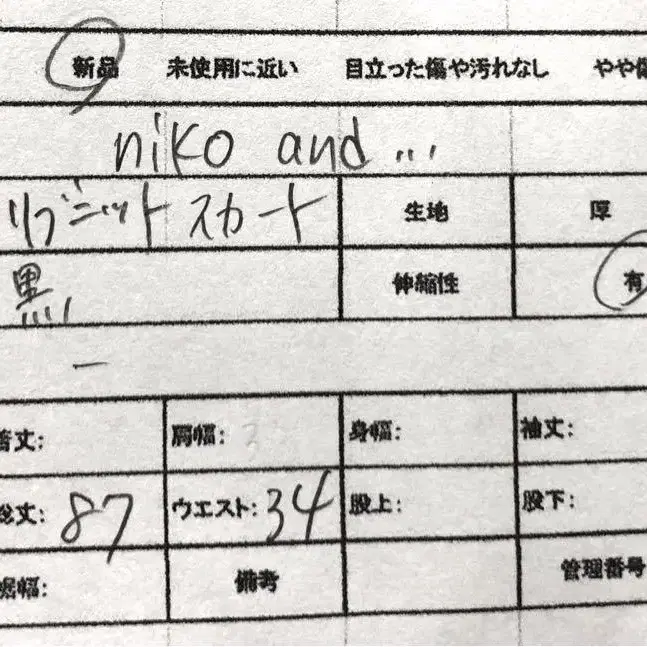 新品 未使用に近い 目立った傷や汚れなし やや傷
niko and ...
リブニットスカート 生地 厚
黒 伸縮性 有
ー
着丈: 肩幅: 身幅: 袖丈:
総丈: 87 ウエスト: 34 股上: 股下:
裾幅: 備考 管理番号